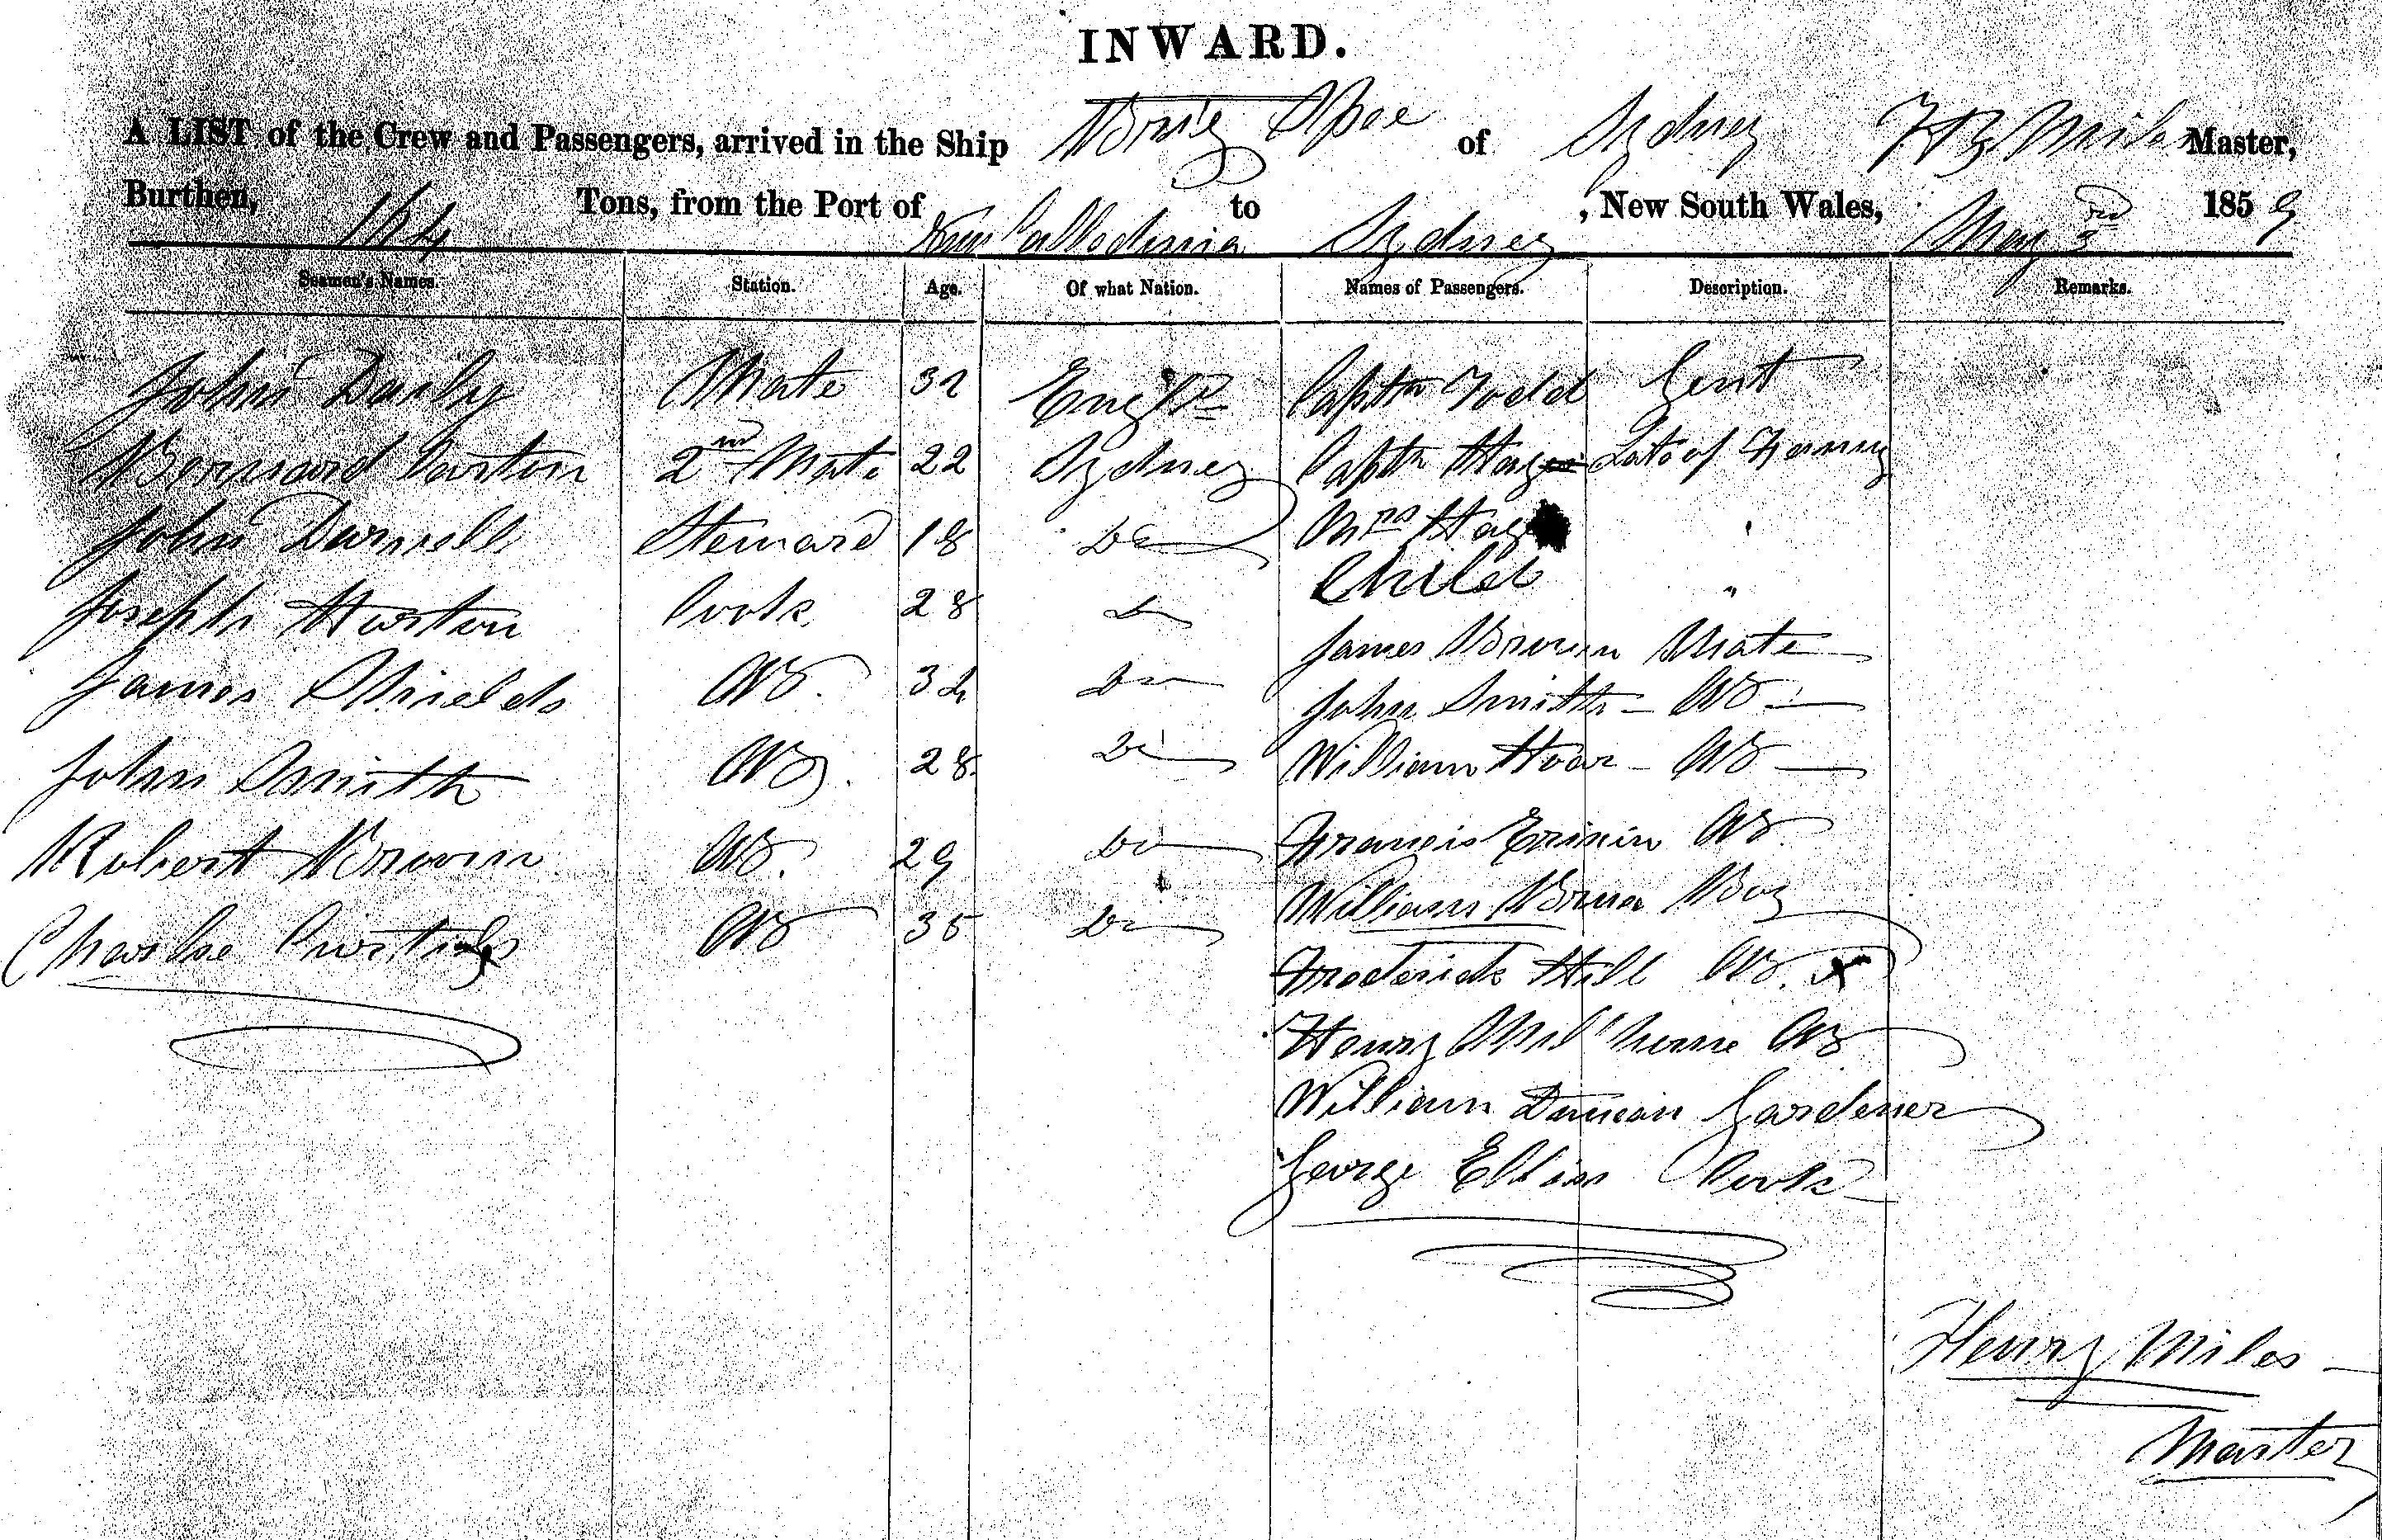 INWARD.
A LIST of the Crew and Passengers, arrived in the Ship Brig Spec of Sydney Miles Master,
Burthen, Tons, from the Port of New Calledonia to Sydney, New South Wales, May 3rd 1859
Seamen's Names. Station. Age. Of what Nation. Names of Passengers. Description. Remarks.
John Darby Mate 32 Captn Todd Gent
Bernard Carston 2nd Mate 22 Sydney Captn Late of
John Darnell Steward 18 Do Mrs "
Child "
Joseph Horton Cook 28 Do James Brown Mate
James Shields AB. Do John Smith - AB
John Smith AB. 28 Do William Hoar - AB
Robert Brown AB. 29 Do Francis AB
William Boy
Charles AB 35 Do Frederick Hill AB. x
Henry AB
William Duncan Gardener
George Ellis Cook
Henry Miles
Master